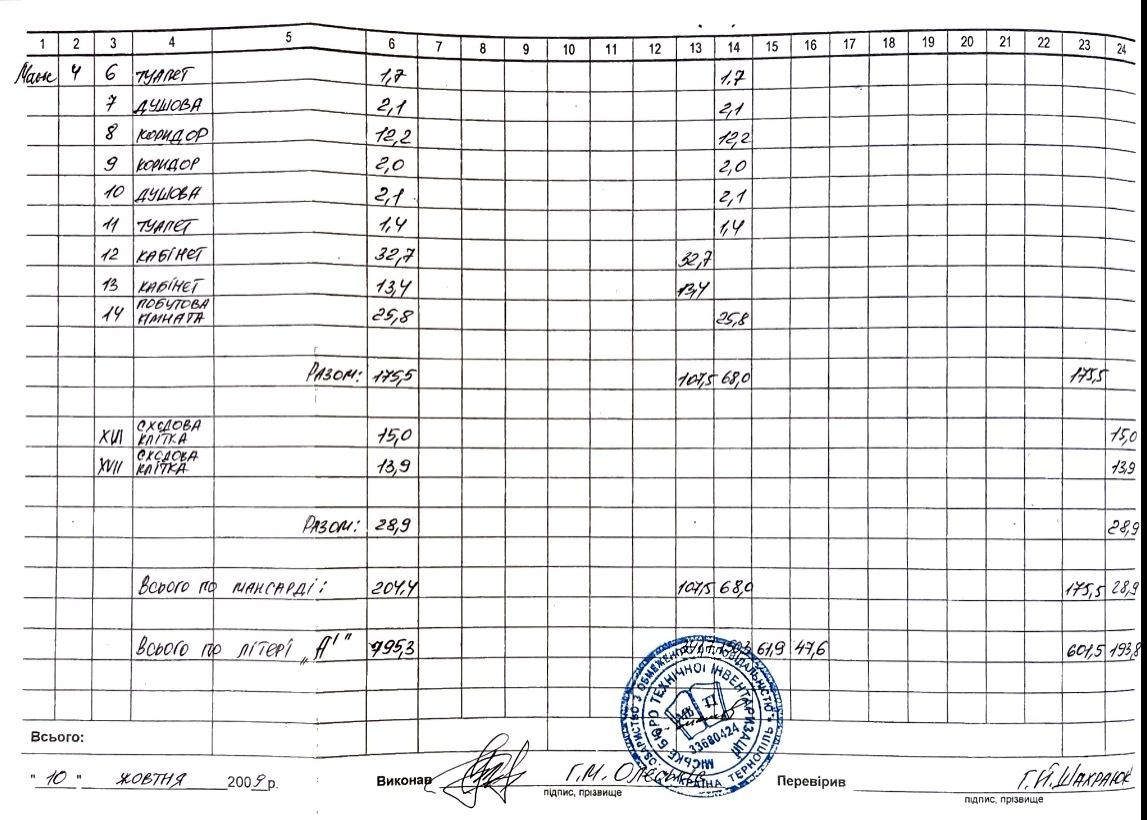 1 2 3 4 5 6 7 8 9 10 11 12 13 14 15 16 17 18 19 20 21 22 23 24
Манс 4 6 ТУАЛЕТ 1,7 1,7
7 ДУШОВА 2,1 2,1
8 КОРИДОР 12,2 12,2
9 КОРИДОР 2,0 2,0
10 ДУШОВА 2,1 2,1
11 ТУАЛЕТ 1,4 1,4
12 КАБІНЕТ 32,7 32,7
13 КАБІНЕТ 13,4 13,4
14 ПОБУТОВА
КІМНАТА 25,8 25,8
РАЗОМ: 175,5 107,5 68,0 175,5
СХОДОВА
XVI КЛІТКА 15,0 15,0
СХОДОВА
XVII КЛІТКА 13,9 13,9
РАЗОМ: 28,9 28,9
Всього по МАНСАРДІ: 204,4 107,5 68,0 175,5 28,9
Всього по ЛІТЕРІ „А'" 795,3 61,9 47,6 601,5 193,8
ТОВАРИСТВО З ОБМЕЖЕНОЮ ВІДПОВІДАЛЬНІСТЮ
МІСЬКЕ БЮРО ТЕХНІЧНОЇ ІНВЕНТАРИЗАЦІЇ
33680424
УКРАЇНА ТЕРНОПІЛЬ
Всього:
" 10 " ЖОВТНЯ 2009 р. Виконав Г.М. Перевірив Г.Й.
підпис, прізвище підпис, прізвище